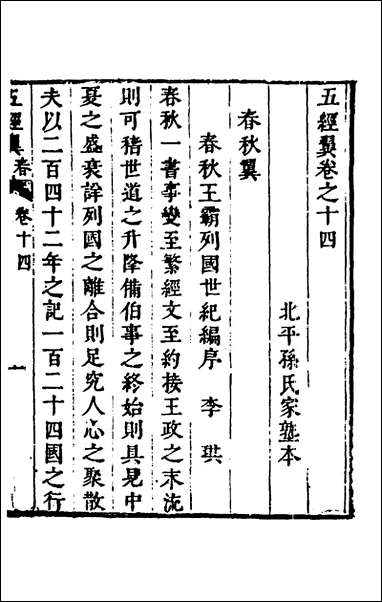 五經翼卷之十四
北平孫氏家塾本
春秋翼
春秋王霸列國世紀編序　李琪
春秋一書事變至繁經文至約接王政之末流
則可稽世道之升降備伯事之終始則具見中
夏之盛衰詳列國之離合則足究人心之聚散
夫以二百四十二年之記一百二十四國之行
五經翼春 卷十四 一